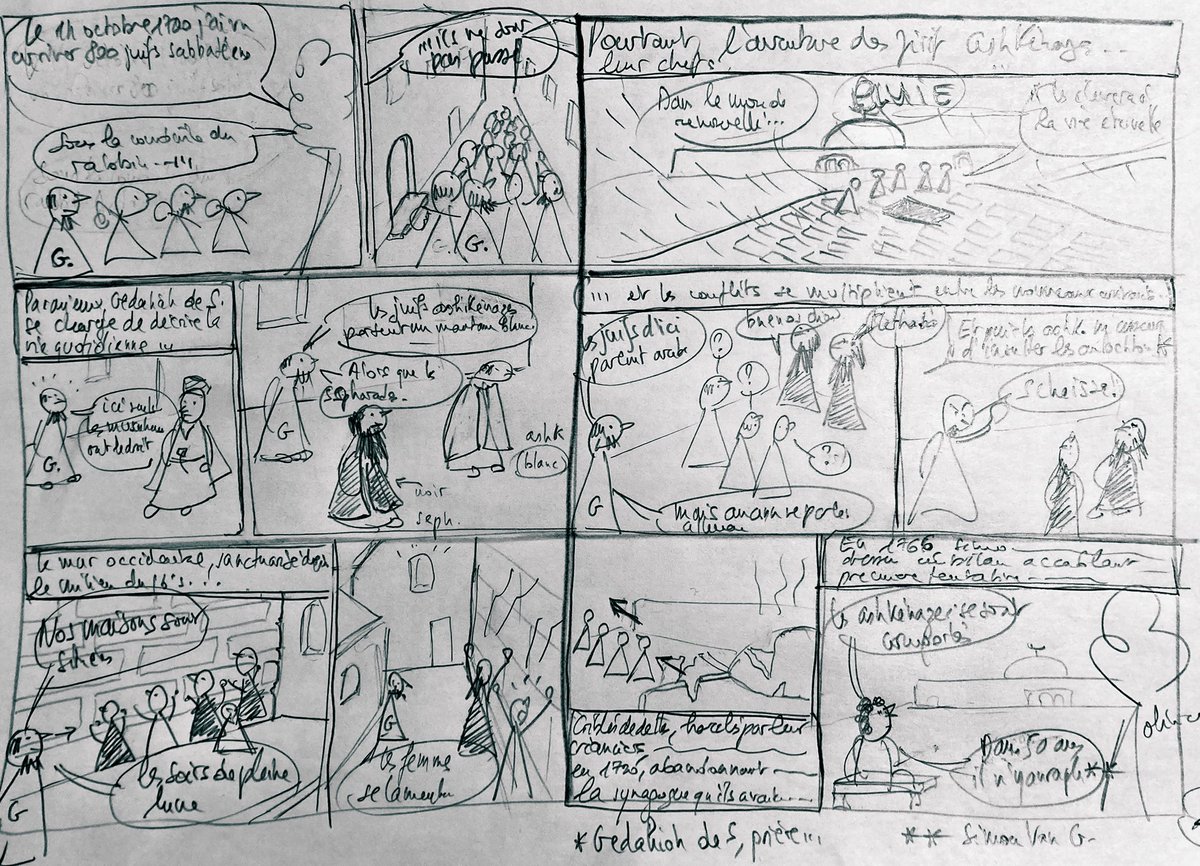 Le 14 octobre 1700, j'ai vu
arriver 800 juifs sabbatéens
Sous la conduite du
rabbin
G.
mais ne sont
pas passé
G.
G.
Pourtant l'aventure des juifs ashkénaze...
leur chefs.
Dans le monde
renouvelé...
PLUIE
la vie éternelle
Par ailleurs, Gedaliah de S.
se charge de décrire la
vie quotidienne ...
ici seuls
les musulmans
ont le droit
G.
les juifs ashkénazes
portent un manteau blanc.
Alors que les
sépharades.
G
ashk
blanc
noir
seph.
... et les conflits se multiplient entre les nouveaux arrivants.
les juifs d'ici
parlent arabe
?
?
?
buenos dias
G
mais aucun ne parle
allemand
Et puis les ashk.
d'insulter les autochtones
Scheisse!
le mur occidental, sanctuarisé depuis
le milieu du 16e s. ...
Nos maisons sont
les soirs de pleine
lune
G
G
les femmes
se lamentent
Criblés de dettes, harcelés par leur
créanciers
en 1720, abandonnant
la synagogue qu'ils avaient
En 1766 Simon
dresse un bilan accablant
première tentative
les ashkénazes se sont
comportés
Dans 50 ans
il n'y aura plus**
* Gedaliah de S, prière ...
** Simon Van G.